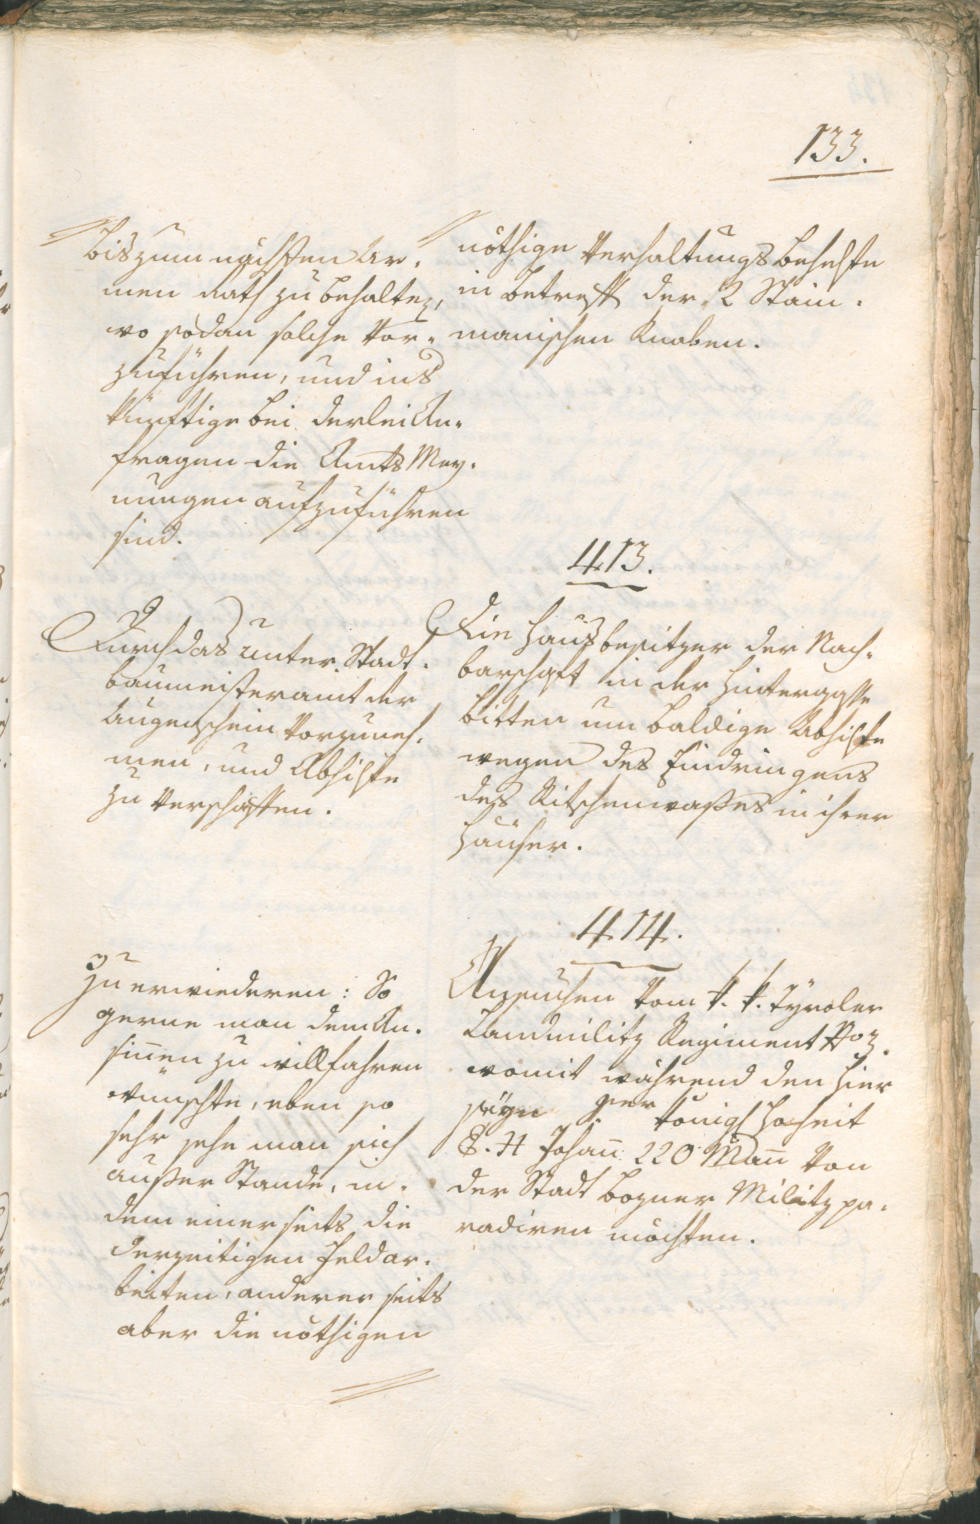 133.
bis zum nächsten Ar¬
men Rath zu behalten,
wo sodan solche vor¬
zuführen, und ins
künftige bei derlei An¬
fragen die Amts Mey¬
nungen aufzuführen
sind.
nöthige Verhaltungsbefehle
in Betreff der 2 Stain¬
manischen Knaben.
413.
Durch das unter. Stadt¬
baumeisteramt der
Augenschein vorzuneh¬
men, und Abhilfe
zu verschaffen.
Die Hausbesitzer der Nach¬
barschaft in der Hintergasse
bitten um baldige Abhilfe
wegen des Eindringens
des Ritschenwaßers in ihrer
Häuser.
414.
Zu erwiederen: So
gerne man dem An¬
sinnen zu willfahren
wünschte, eben so
sehr sehe man sich
außer Stande, in¬
dem einerseits die
derzeitigen Feldar¬
beiten, anderer seits
aber die nöthigen
Ansuchen vom k. k. Tyroler
Landmilitz Regiment
womit während den Hier
seyn Sr königl Hoheit
E. H Johann 220 Mann von
der Stadt Bozner Militz pa¬
radiren möchten.